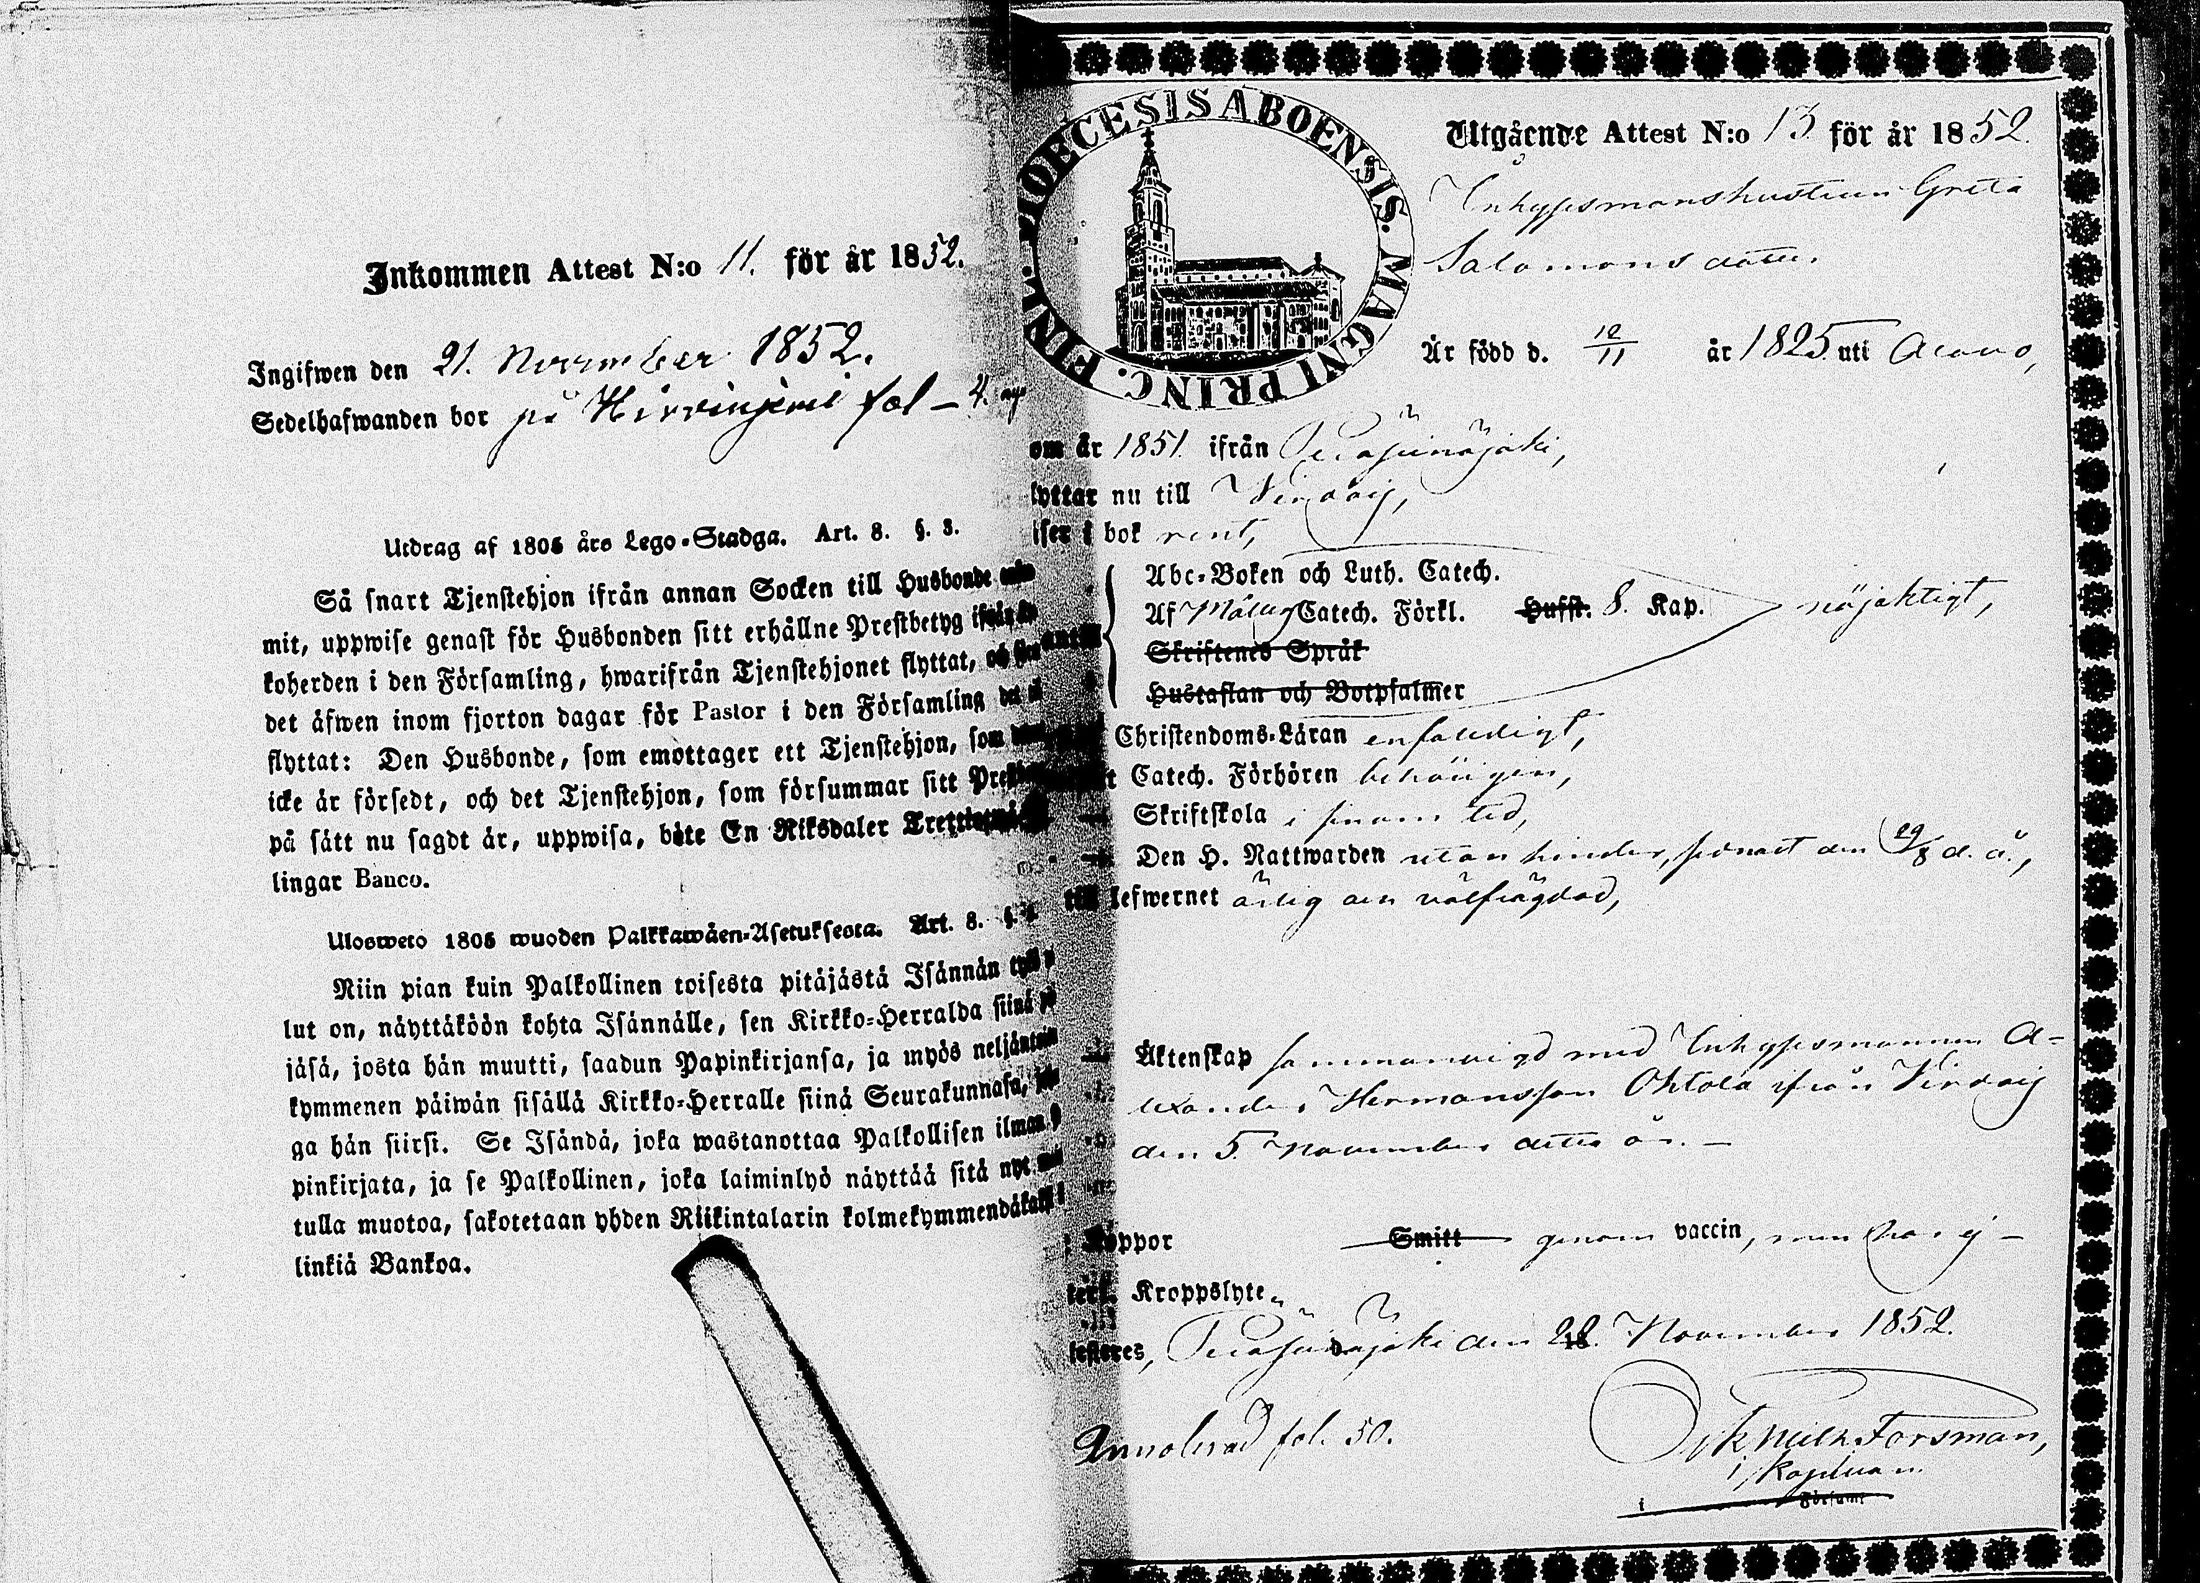 Inkommen Attest N:o 11. för år 1852.
Ingifwen den 21. November 1852.
Sedelhafwanden bor på Hirvinjemi fol – 4.
Utdrag af 1805 års Lego-Stadga. Art. 8. §. 3.
Så snart Tjenstehjon ifrån annan Socken till Husbonde
mit, uppwise genast för Husbonden sitt erhållne Prestbetyg ifrån
koherden i den Församling, hwarifrån Tjenstehjonet flyttat, och
det äfwen inom fjorton dagar för Pastor i den Församling det
flyttat: Den Husbonde, som emottager ett Tjenstehjon, som
icke är försedt, och det Tjenstehjon, som försummar sitt
på sätt nu sagdt är, uppwisa, böte En Riksdaler
lingar Banco.
Ulosweto 1805 wuoden Palkkawäen-Asetuksesta. Art. 8. §.
Niin pian kuin Palkollinen toisesta pitäjästä Isännän
lut on, näyttäköön kohta Isännälle, sen Kirkko-Herralda siinä
jäsä, josta hän muutti, saadun Papinkirjansa, ja myös
kymmenen päiwän sisällä Kirkko-Herralle siinä Seurakunnasa,
ga hän siirsi. Se Isändä, joka wastanottaa Palkollisen ilman
pinkirjata, ja se Palkollinen, joka laiminlyö näyttää sitä nyt
tulla muotoa, sakotetaan yhden Riikintalarin
linkiä Bankoa.
DIOECESIS ABOENSIS. MAGNI PRINC. FINL.
Utgående Attest N:o 13. för år 1852.
Inhysesmanshustrun Greta
Salomonsdotter.
Är född d. 12/11 år 1825 uti
om år 1851. ifrån Peräseinäjoki,
lyttar nu till Virdois,
iser i bok rent,
Abc-Boken och Luth. Catech.
Af Catech. Förkl. Hufst. 8. Kap. nöjaktigt,
Skriftenes Språk
Hustaflan och Botpsalmer
Christendoms-Läran enfaldigt,
Catech. Förhören behörigen,
Skriftskola i sinom tid,
Den H. Nattwarden utan hinder, senast den 29/8 d. å.,
till lefwernet ärlig och välfrägdad,
Äktenskap sammanvigd med Inhysesmannen A-
lexander Hermansson Ohtola ifrån Virdois
den 5. November detta år. –
Koppor Smitt genom vaccin, men har ej –
Kroppslyte.
Peräseinäjoki den November 1852.
Annoterad fol. 50. Forsman,
i
Församl